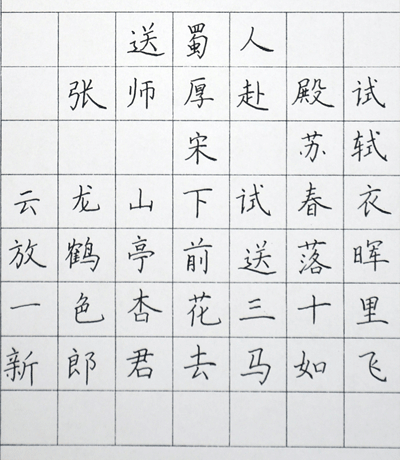 送蜀人
张师厚赴殿试
宋 苏轼
云龙山下试春衣
放鹤亭前送落晖
一色杏花三十里
新郎君去马如飞